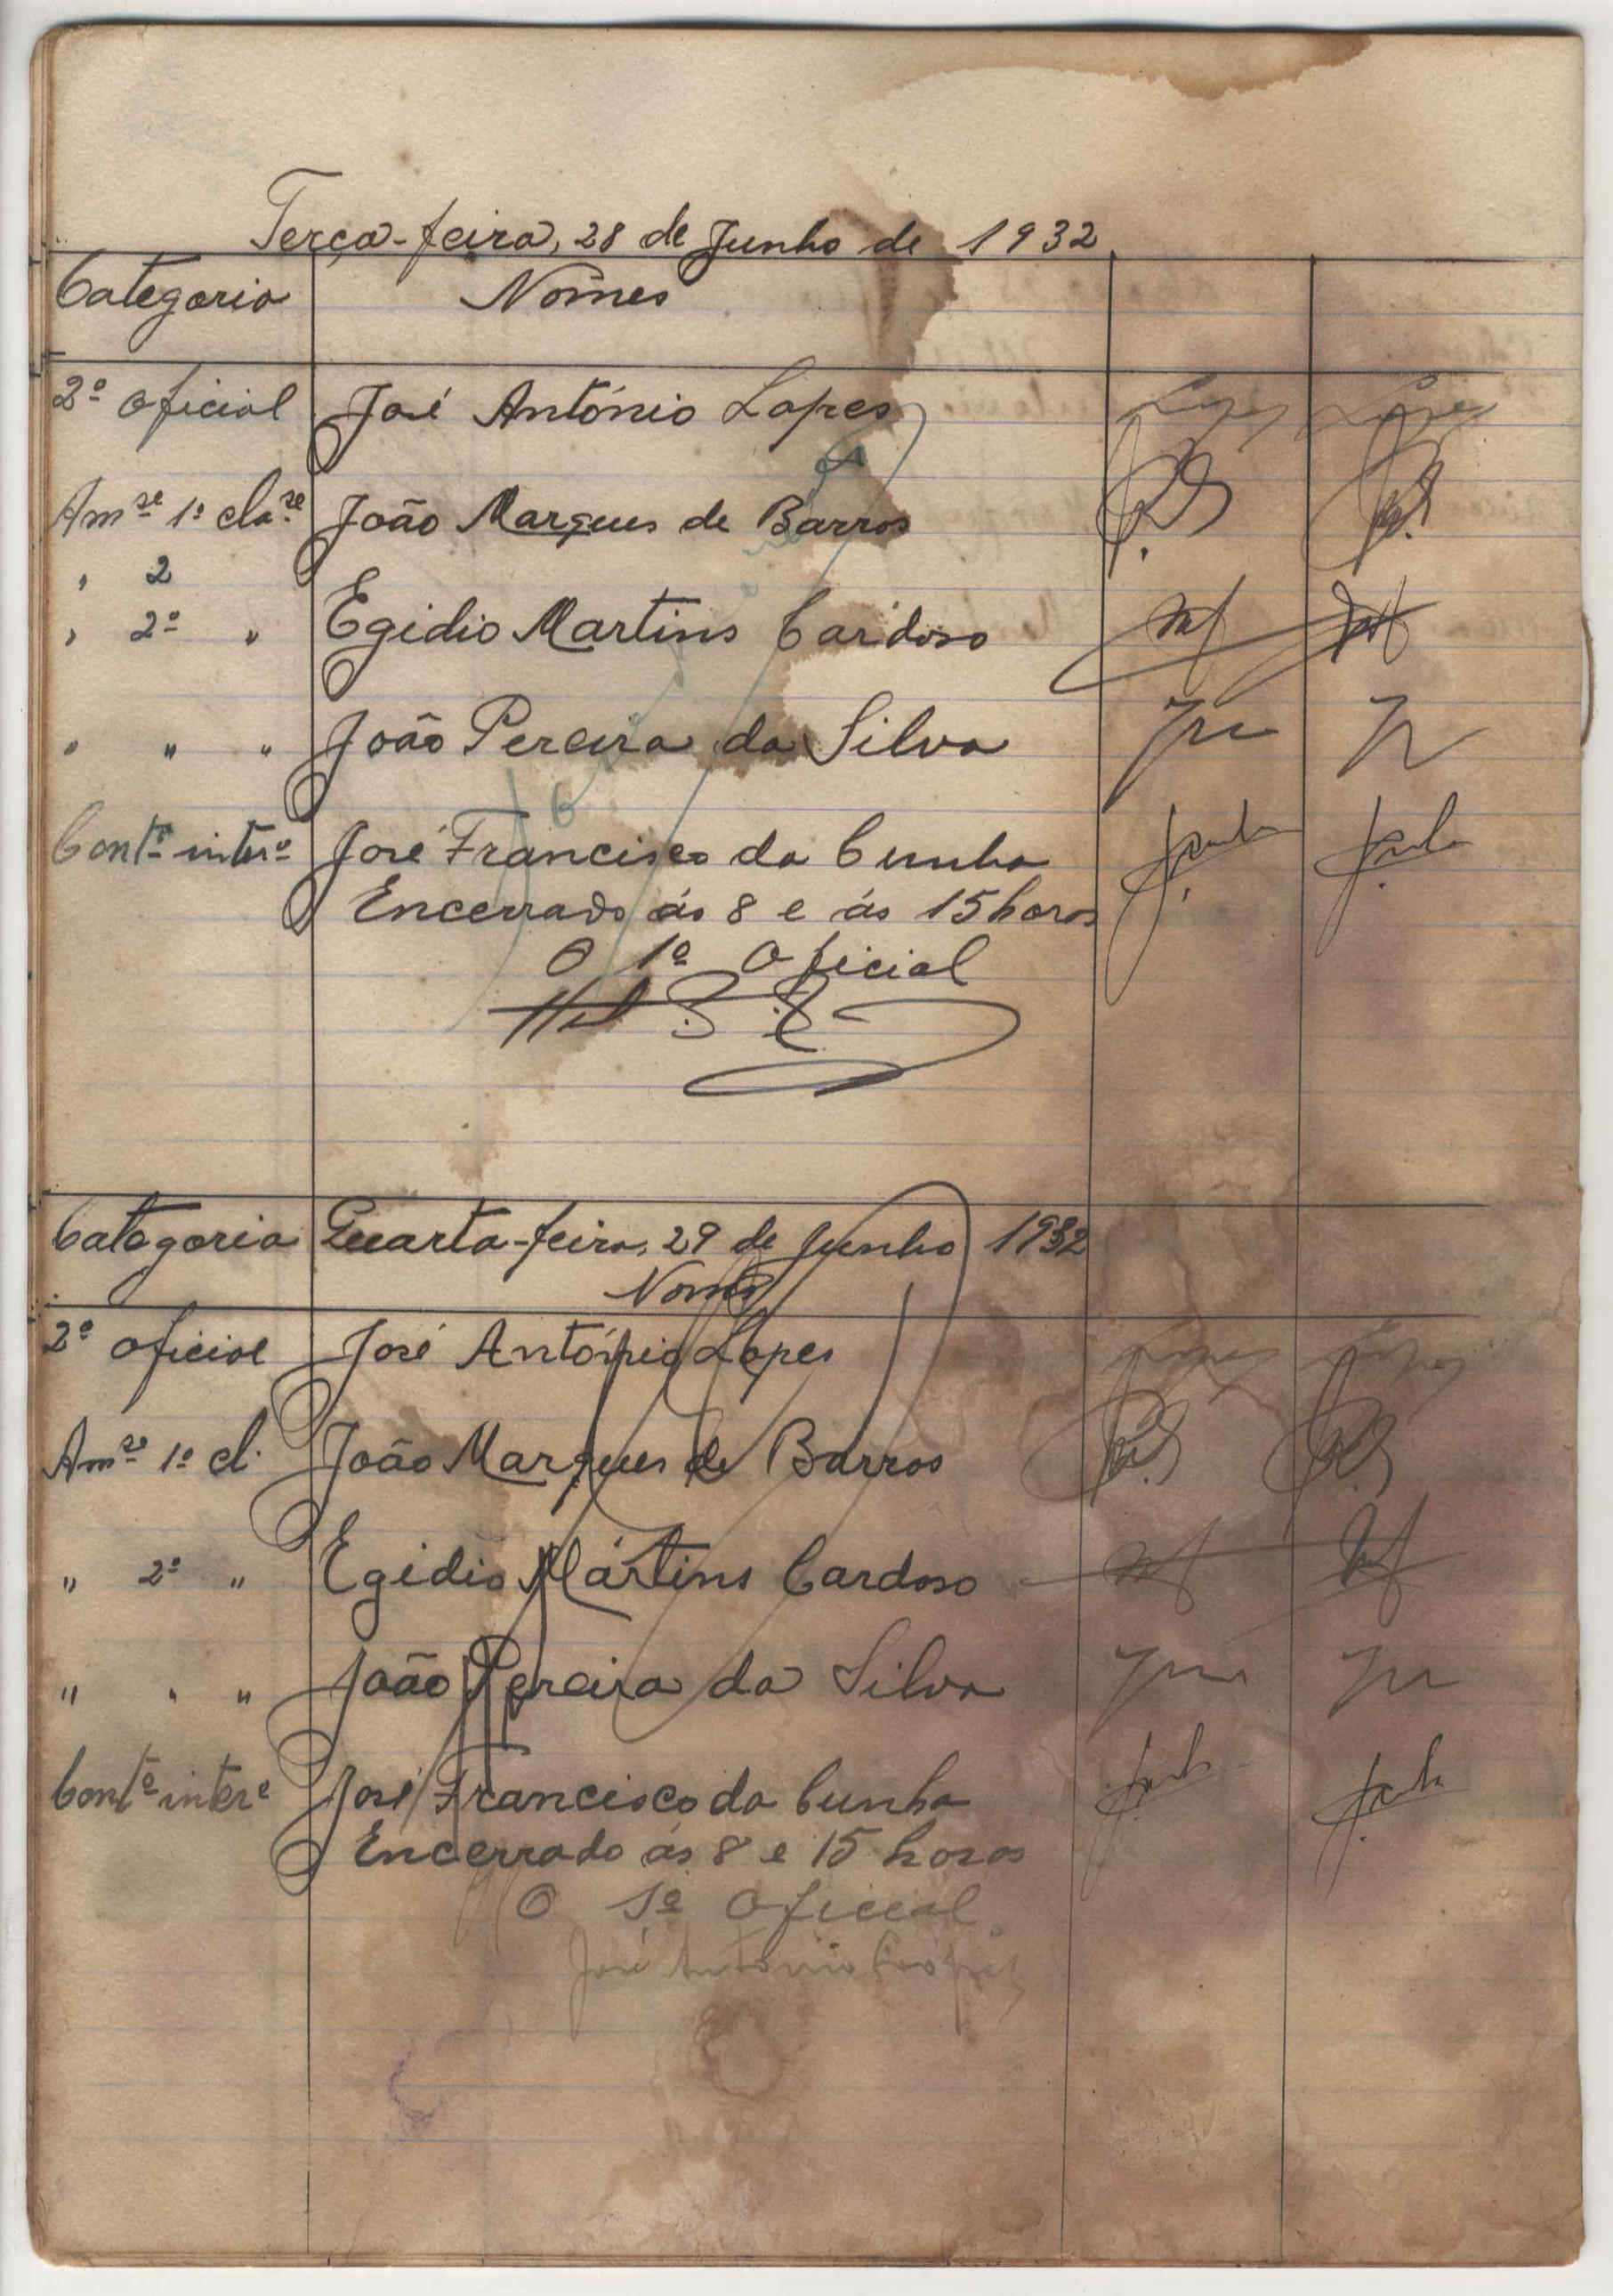 Terça-feira, 28 de Junho de 1932
Categoria Nomes
2º Oficial José António Lopes Lopes Lopes
Amse 1º clase João Marques de Barros
, 2
, 2º " Egidio Martins Cardoso
" " " João Pereira da Silva
Conto intero José Francisco da Cunha
Encerrado ás 8 e ás 15 horas
O 1º Oficial
Categoria Quarta-feira, 29 de Junho 1932
Nomes
2º oficial José António Lopes Lopes Lopes
Amse 1º cl. João Marques de Barros
" 2º " Egidio Mártins Cardoso
" " " João Pereira da Silva
Conto intere José Francisco da Cunha
Encerrado ás 8 e 15 horas
O 1º Oficial
José António Lopes